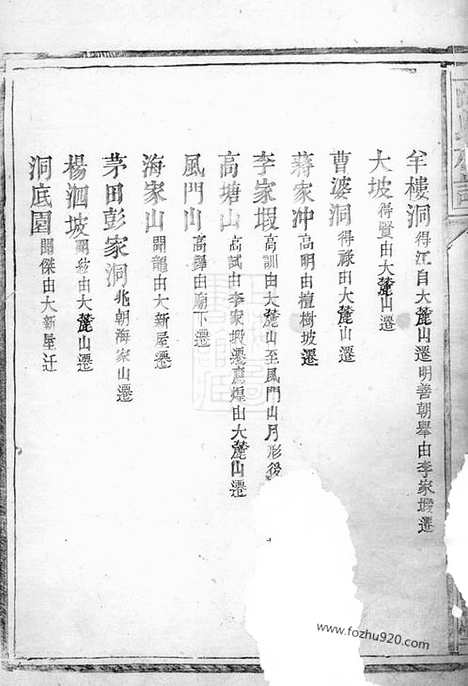 牟樓洞得江自大麓山遷明善朝舉由李家塅遷
大坡得賢由大麓山遷
曹婆洞得祿由大麓山遷
蔣家冲高明由檀樹坡遷
李家塅高訓由大麓山至風門山月形後
高塘山高試由李家塅遷應煌由大麓山遷
風門山高鐸由廟下遷
海家山開龍由大新屋遷
茅田彭家洞兆朝海家山遷
楊泗坡由大麓山遷
洞底園開傑由大新屋迁
www.fozhu920.com